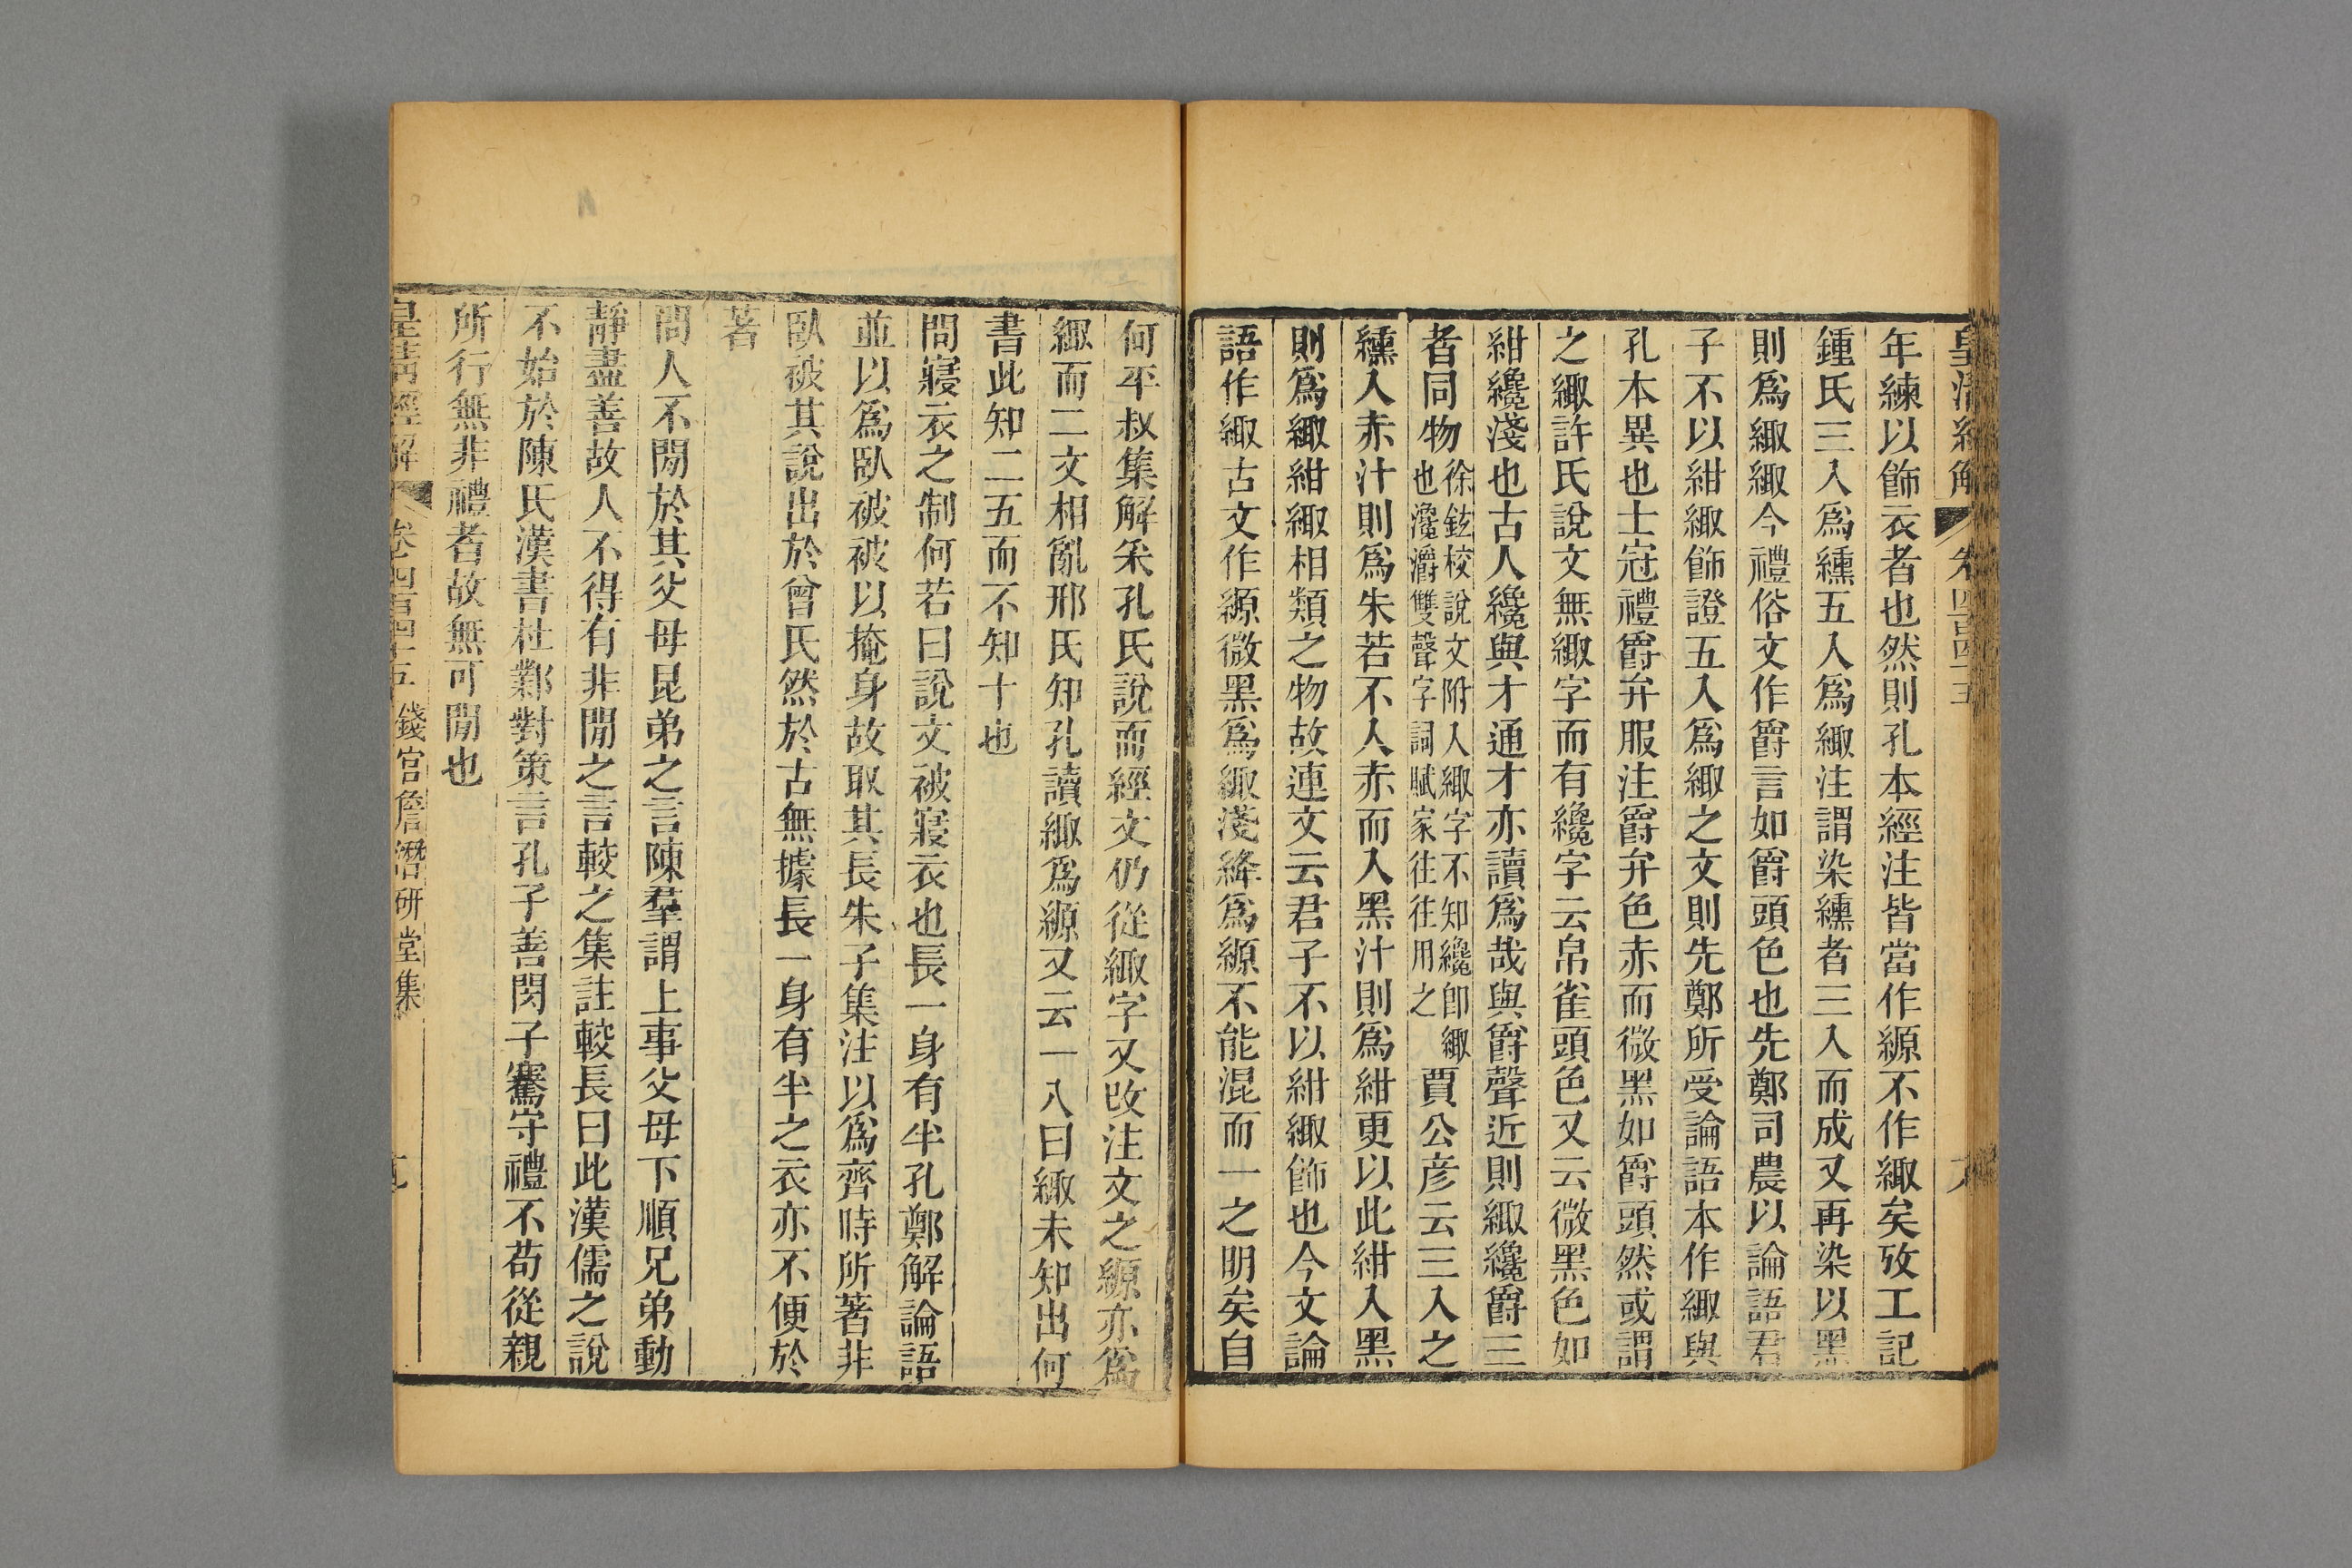 皇清經解 卷四百四十五
年練以飾衣者也然則孔本經注皆當作縓不作緅矣攷工記
鍾氏三入爲纁五入爲緅注謂染纁者三入而成又再染以黑
則爲緅緅今禮俗文作爵言如爵頭色也先鄭司農以論語君
子不以紺緅飾證五入爲緅之文則先鄭所受論語本作緅與
孔本異也士冠禮爵弁服注爵弁色赤而微黑如爵頭然或謂
之緅許氏說文無緅字而有纔字云帛雀頭色又云微黑色如
紺纔淺也古人纔與才通才亦讀爲哉與爵聲近則緅纔爵三
者同物
徐鉉校說文附入緅字不知纔卽緅
也瀺灂雙聲字詞賦家往往用之
賈公彦云三入之
纁入赤汁則爲朱若不入赤而入黑汁則爲紺更以此紺入黑
則爲緅紺緅相類之物故連文云君子不以紺緅飾也今文論
語作緅古文作縓微黑爲緅淺絳爲縓不能混而一之明矣自
何平叔集解采孔氏說而經文仍從緅字又改注文之縓亦爲
緅而二文相亂邢氏知孔讀緅爲縓又云一入曰緅未知出何
書此知二五而不知十也
問寢衣之制何若曰說文被寢衣也長一身有半孔鄭解論語
並以爲臥被被以掩身故取其長朱子集注以爲齊時所著非
臥被其說出於曾氏然於古無據長一身有半之衣亦不便於
著
問人不閒於其父母昆弟之言陳羣謂上事父母下順兄弟動
靜盡善故人不得有非閒之言較之集註較長曰此漢儒之說
不始於陳氏漢書杜鄴對策言孔子善閔子騫守禮不苟從親
所行無非禮者故無可閒也
皇清經解 卷四百四十五 錢宮詹潛研堂集